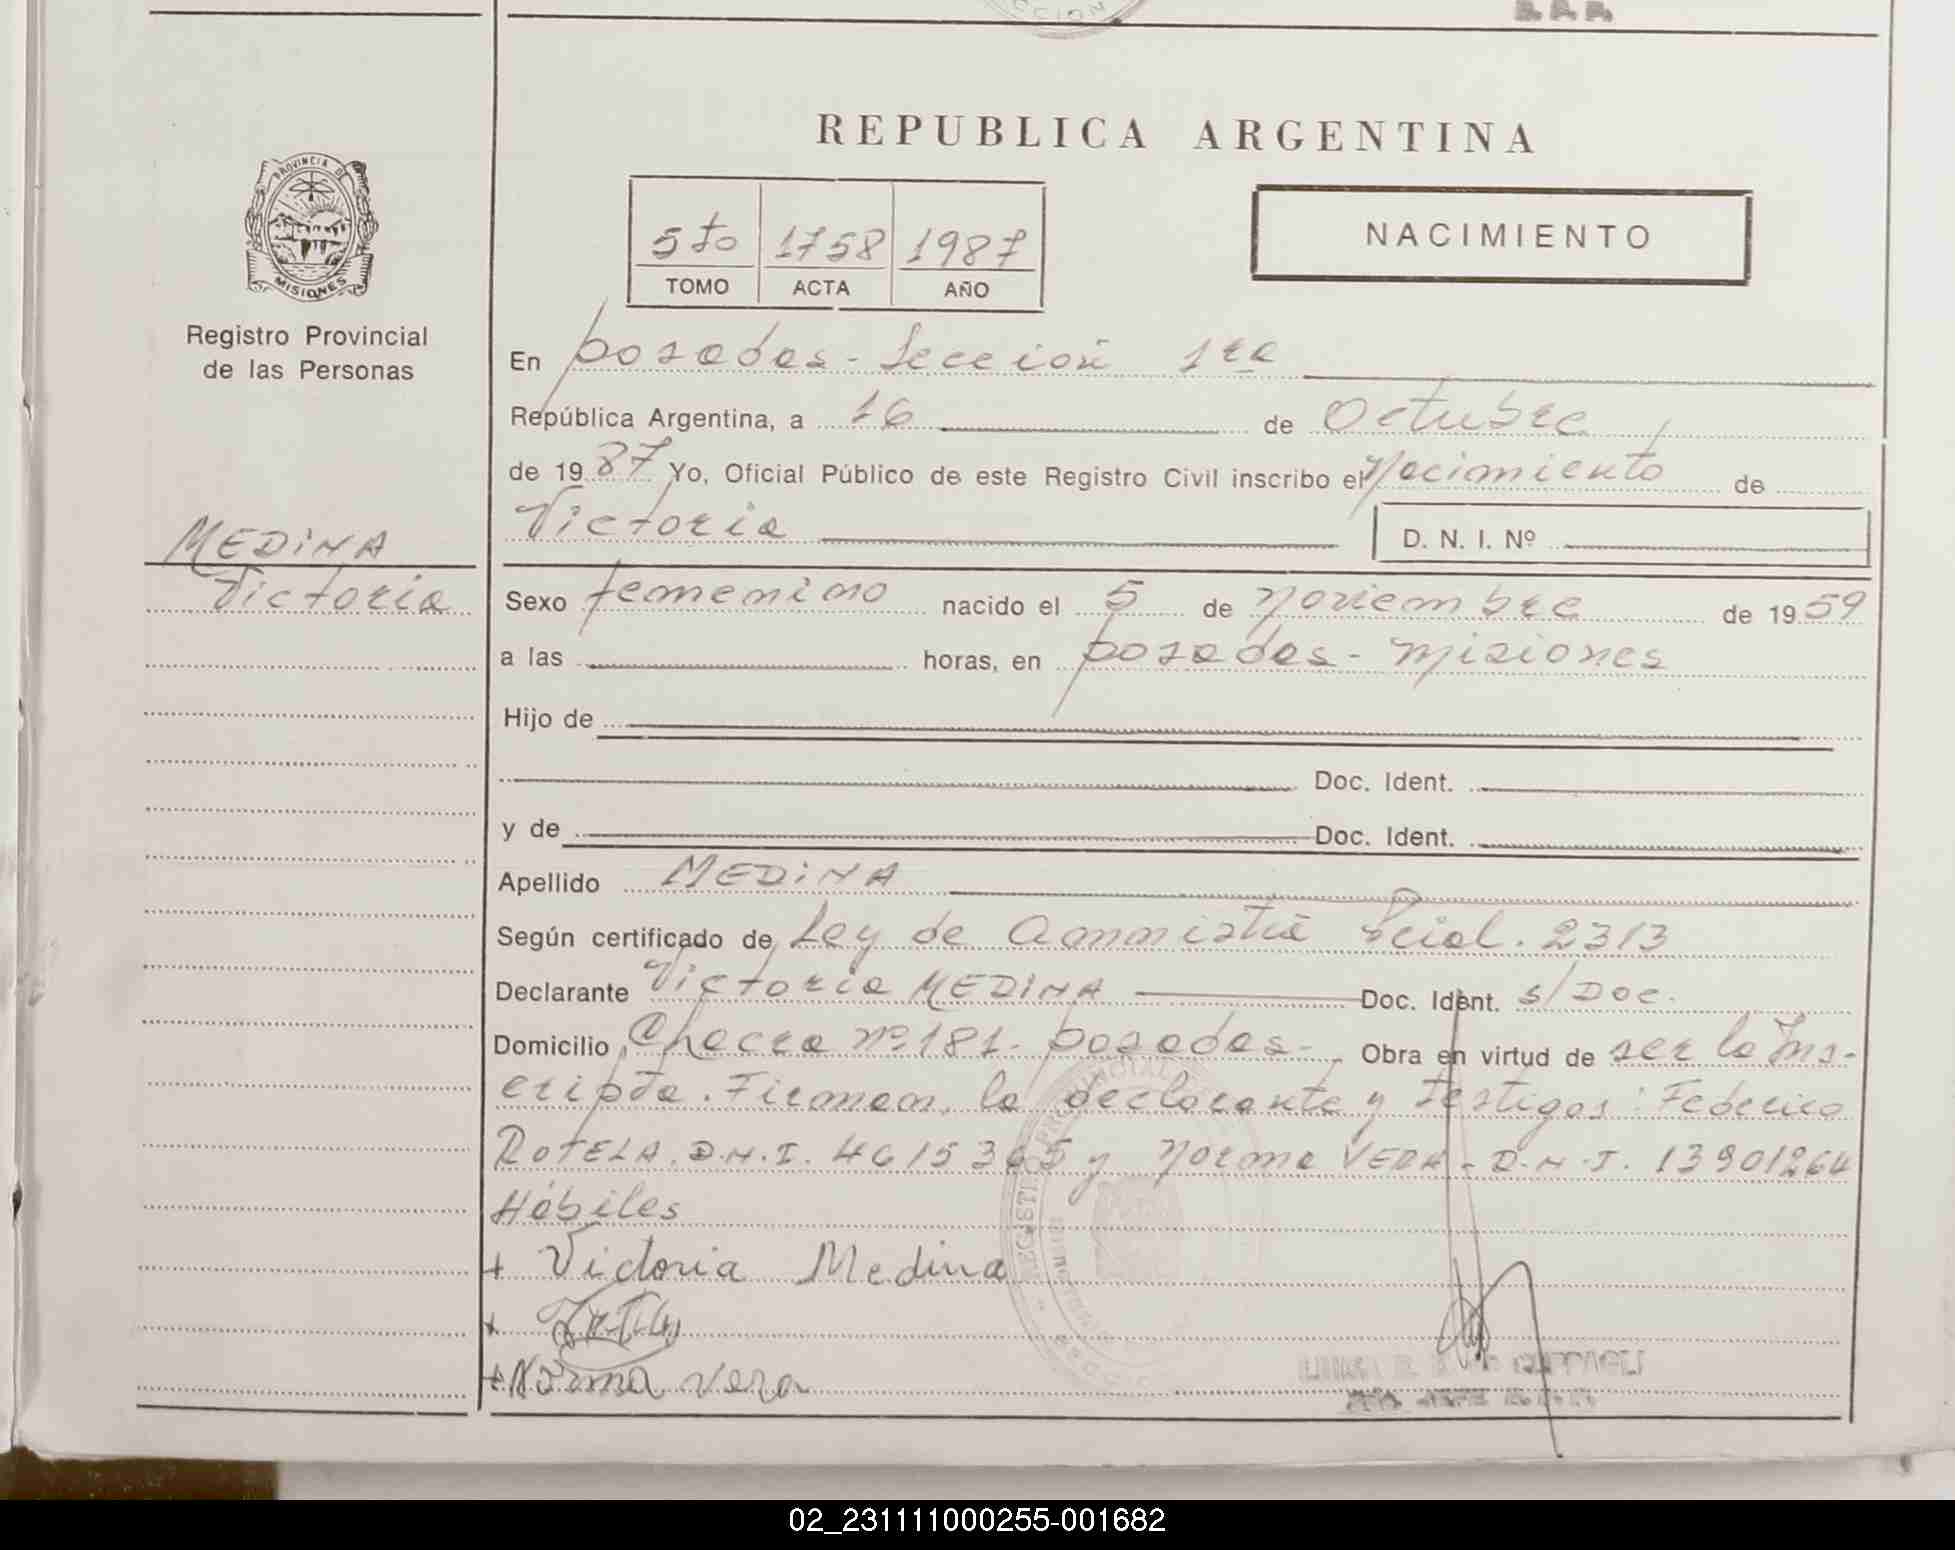 CCION
REPUBLICA ARGENTINA
PROVINCIA DE
MISIONES
Registro Provincial
de las Personas
5to 1758 1987
TOMO ACTA AÑO
NACIMIENTO
En Posadas - Sección 1ra
República Argentina, a 16 de Octubre
de 1987 Yo, Oficial Público de este Registro Civil inscribo el Nacimiento de
Victoria D. N. I. Nº
MEDINA
Victoria
Sexo femenino nacido el 5 de Noviembre de 1959
a las horas, en Posadas - Misiones
Hijo de
Doc. Ident.
y de Doc. Ident.
Apellido MEDINA
Según certificado de Ley de Amnistía 2313
Declarante Victoria MEDINA Doc. Ident. s/Doc.
Domicilio Chacra nº 181 - Posadas - Obra en virtud de ser la Ins-
cripta. Firman, la declarante y testigos: Federico
ROTELA. D.N.I. 4615365 y Norma VERA - D.N.I. 13901264
Hábiles
+ Victoria Medina
+
+ Norma Vera
02_231111000255-001682